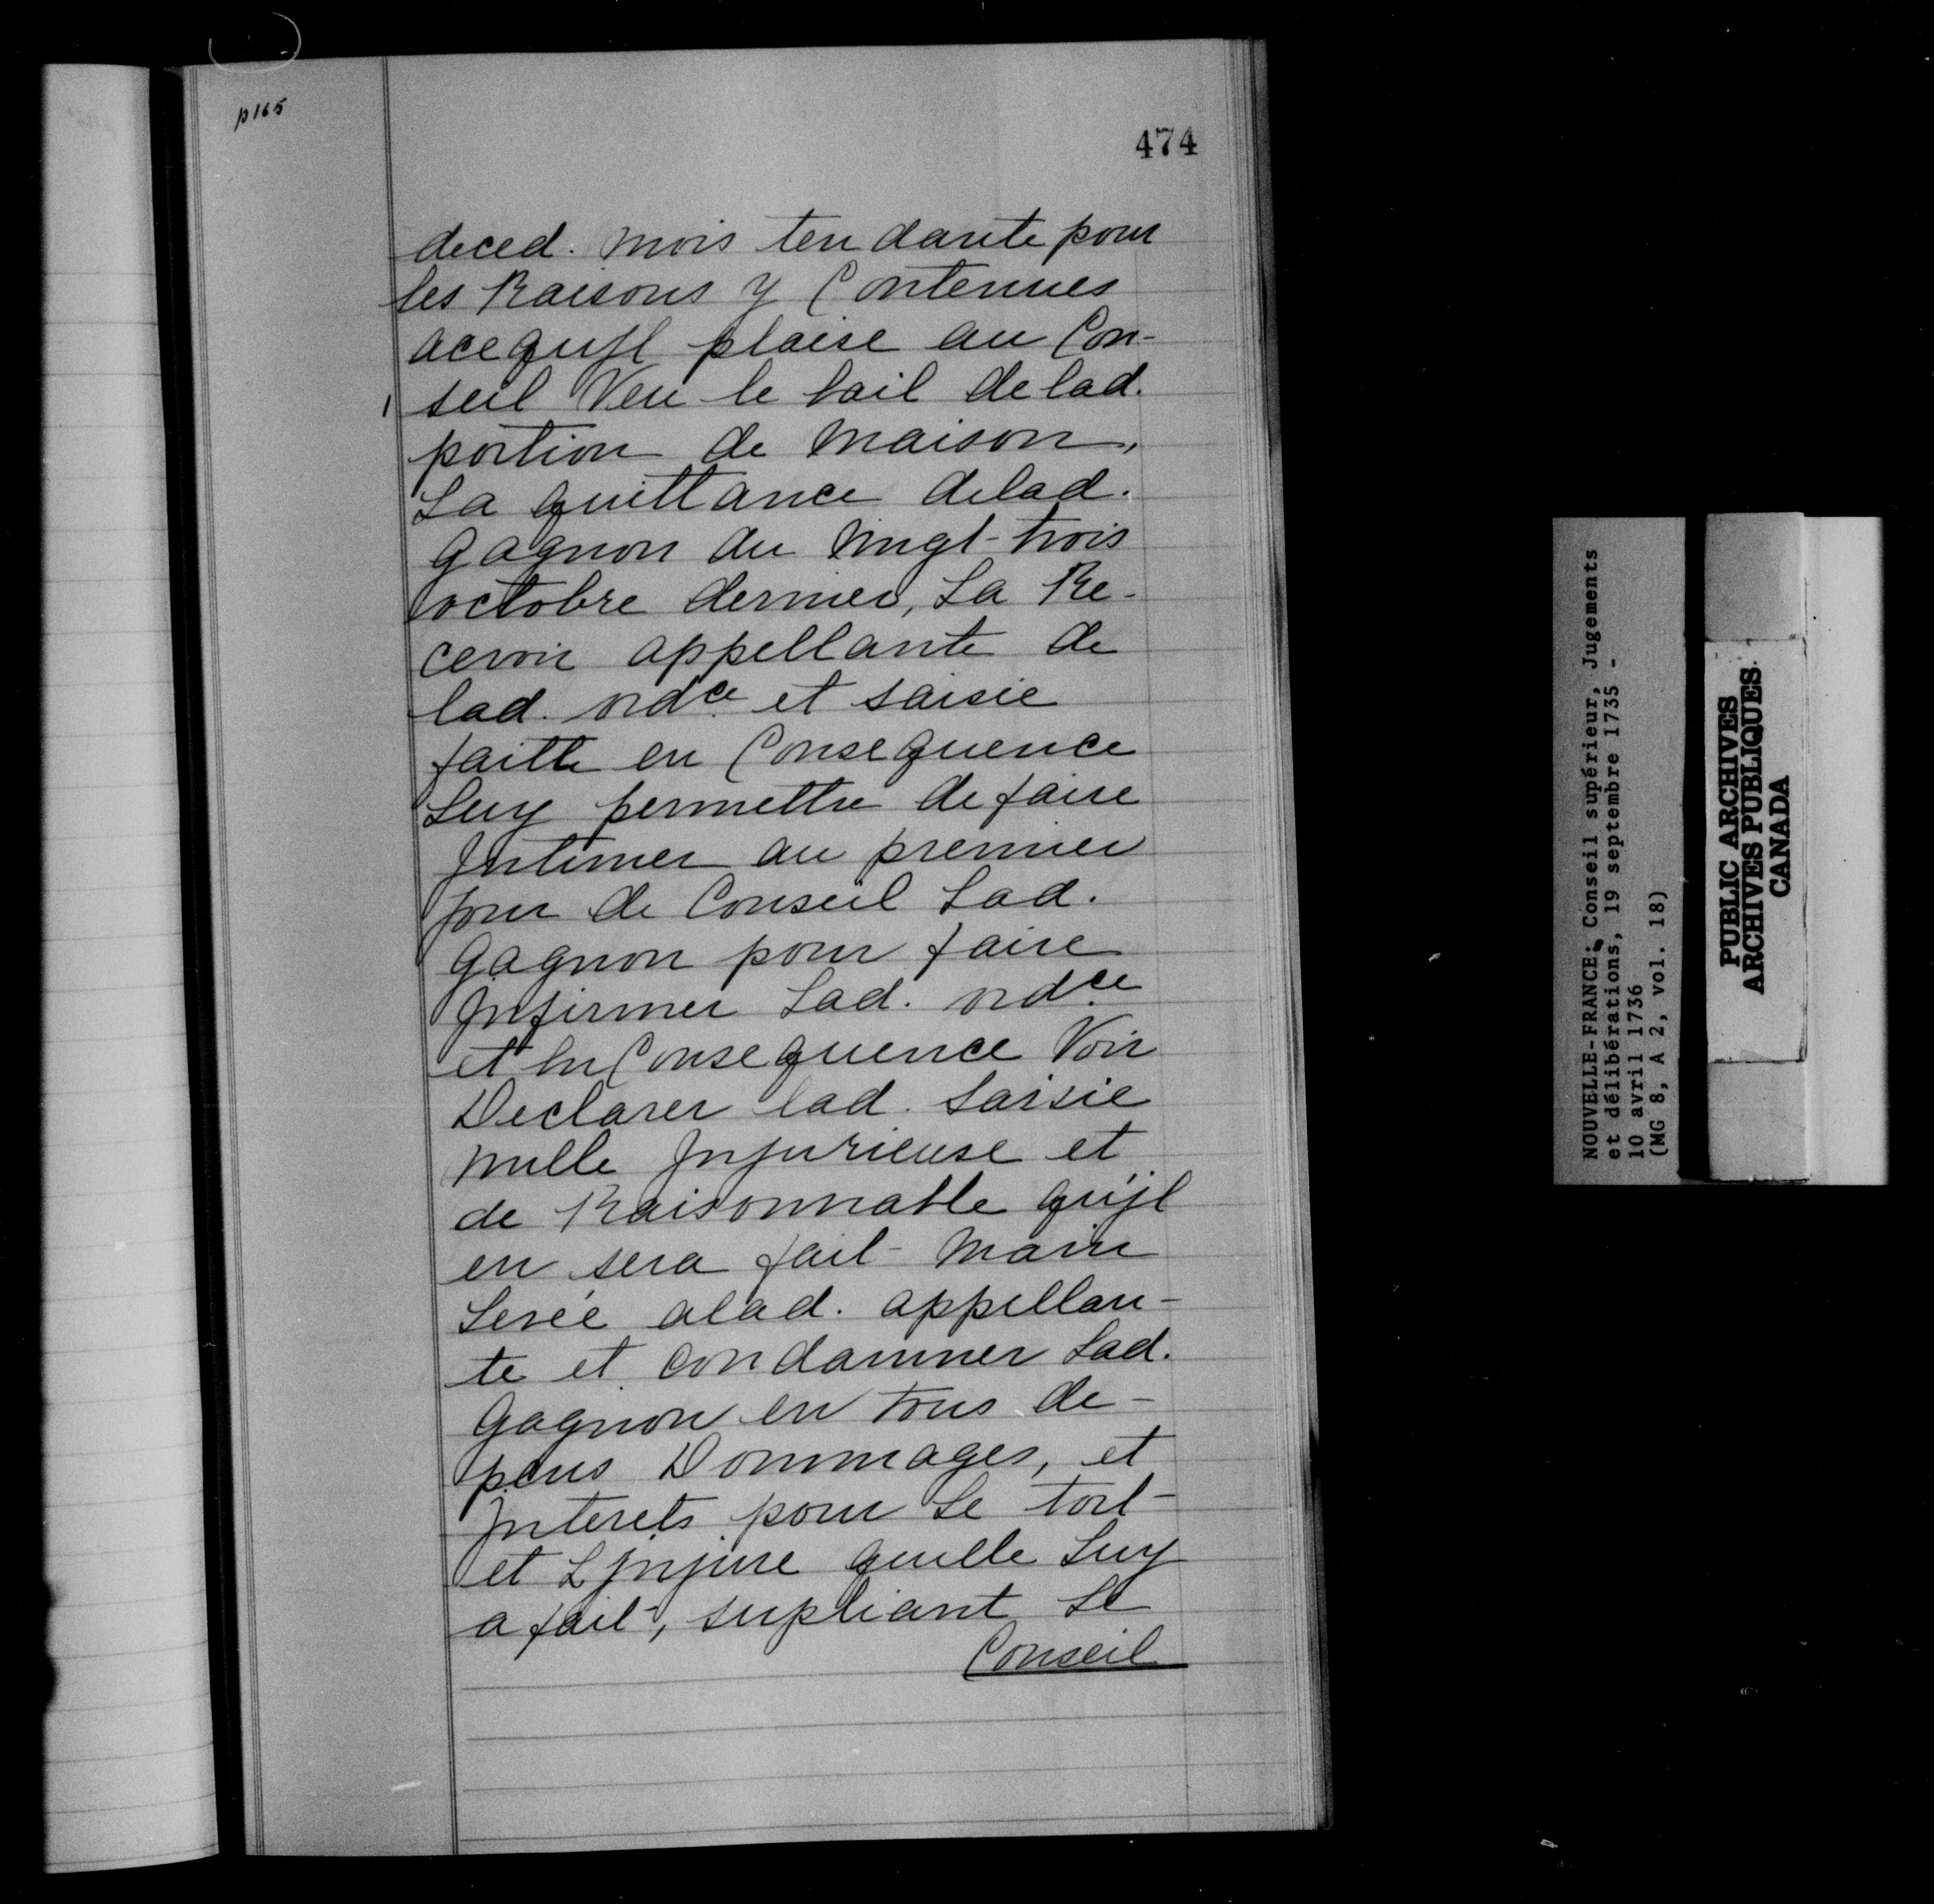 p165
474
deced. mois tendante pour
les Raisons y Contenues
acequjl plaise au Con-
seil Veu le bail delad.
portion de Maison,
La quittance delad.
Gagnon du Vingt-trois
octobre dernier, La Re-
cevoir appellante de
lad. ordce et saisie
faitte en Consequence
Luy permettre defaire
Jntimer au premier
jour de Conseil Lad.
Gagnon pour faire
Jnfirmer Lad. ordce
et en Consequence Voir
Declarer lad. saisie
nulle Jnjurieuse et
de Raisonnable qu'jl
en sera fait Main
Levée alad. appellan-
te et condamner Lad.
Gagnon en tous de-
pens Dommages, et
Jnterets pour Le tort
et LJnjure quelle Luy
a fait, supliant Le
Conseil
NOUVELLE-FRANCE: Conseil supérieur, Jugements
et délibérations, 19 septembre 1735 -
10 avril 1736
(MG 8, A 2, vol. 18)
PUBLIC ARCHIVES
ARCHIVES PUBLIQUES
CANADA